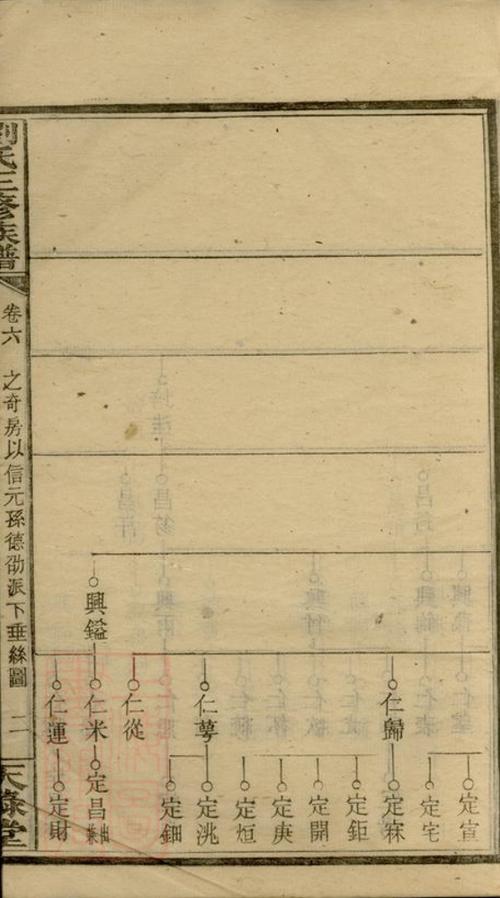 劉氏三修族譜
卷六
之奇房以信元孫德劭派下垂絲圖
二
天祿堂
興鎰
仁歸
仁蕚
仁從
仁米
仁運
定宣
定宅
定寐
定鉅
定開
定庚
定烜
定洮
定鈿
定昌
定財